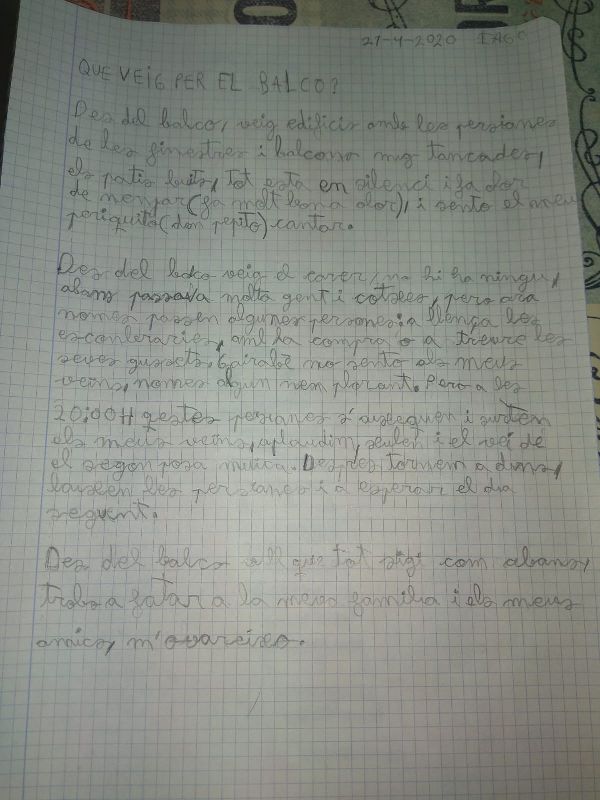 27-4-2020 IAGO
QUE VEIG PER EL BALCO?
Des del balco, veig edificis amb les persianes
de les finestres i balcons mig tancades,
els patis buits, tot esta en silenci i fa olor
de menjar (fa molt bona olor), i sento el meu
periquito (don pepito) cantar.
Des del balco veig el carrer, no hi ha ningu,
abans passava molta gent i cotxes, pero ara
nomes passen algunes persones: a llença les
escombraries, amb la compra o a treure les
seves gussets. Gairabé no sento als meus
veins, nomes algun nen plorant. Pero a les
20:00H qestes persianes s'axequen i surten
els meus veins, aplaudim, xulen i el vei de
el segon posa musica. Despres tornem a dins,
baixen les persianes i a esperar el dia
seguent.
Des del balco vull que tot sigi com abans,
trobo a fatar a la meva familia i els meus
amics, m'avareixo.